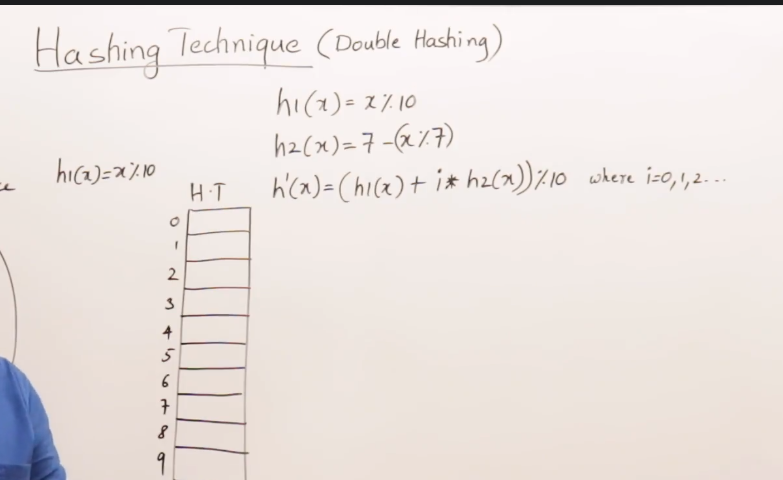 Hashing Technique (Double Hashing)
h1(x) = x % 10
h2(x) = 7 - (x % 7)
h1(x) = x % 10
h'(x) = (h1(x) + i * h2(x)) % 10 where i=0,1,2...
H.T
0
1
2
3
4
5
6
7
8
9